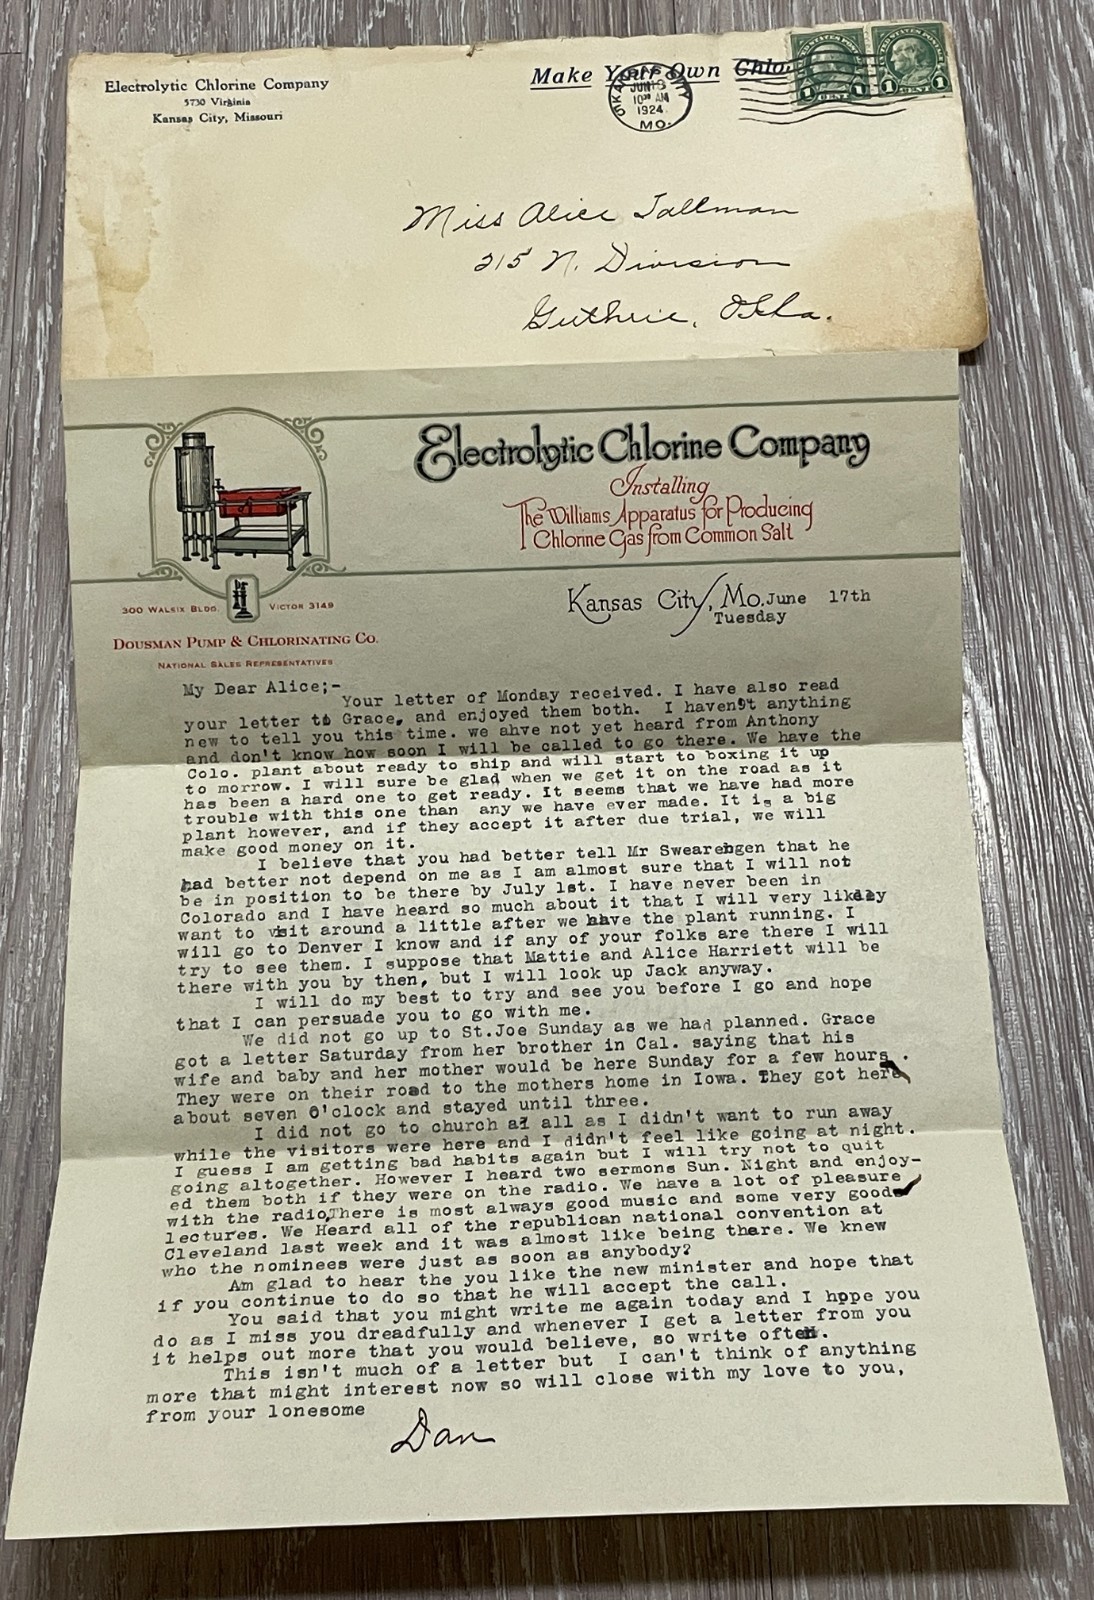 Electrolytic Chlorine Company
5730 Virginia
Kansas City, Missouri
Make Your Own Chlo
KANSAS CITY
JUN 18
10 30 AM
1924
MO.
UNITED STATES POSTAGE
1 CENT 1
UNITED STATES POSTAGE
1 CENT 1
Miss Alice Tallman
215 N. Division
Guthrie, Okla.
Electrolytic Chlorine Company
Installing
The Williams Apparatus for Producing
Chlorine Gas from Common Salt
300 WALSIX BLDG. VICTOR 3149
DOUSMAN PUMP & CHLORINATING CO.
NATIONAL SALES REPRESENTATIVES
Kansas City, Mo. June 17th
Tuesday
My Dear Alice;-
Your letter of Monday received. I have also read
your letter to Grace, and enjoyed them both. I haven't anything
new to tell you this time. we ahve not yet heard from Anthony
and don't know how soon I will be called to go there. We have the
Colo. plant about ready to ship and will start to boxing it up
to morrow. I will sure be glad when we get it on the road as it
has been a hard one to get ready. It seems that we have had more
trouble with this one than any we have ever made. It is a big
plant however, and if they accept it after due trial, we will
make good money on it.
I believe that you had better tell Mr Swearengen that he
had better not depend on me as I am almost sure that I will not
be in position to be there by July 1st. I have never been in
Colorado and I have heard so much about it that I will very likely
want to visit around a little after we have the plant running. I
will go to Denver I know and if any of your folks are there I will
try to see them. I suppose that Mattie and Alice Harriett will be
there with you by then, but I will look up Jack anyway.
I will do my best to try and see you before I go and hope
that I can persuade you to go with me.
We did not go up to St.Joe Sunday as we had planned. Grace
got a letter Saturday from her brother in Cal. saying that his
wife and baby and her mother would be here Sunday for a few hours.
They were on their road to the mothers home in Iowa. They got here
about seven O'clock and stayed until three.
I did not go to church at all as I didn't want to run away
while the visitors were here and I didn't feel like going at night.
I guess I am getting bad habits again but I will try not to quit
going altogether. However I heard two sermons Sun. Night and enjoy-
ed them both if they were on the radio. We have a lot of pleasure
with the radio,There is most always good music and some very good
lectures. We Heard all of the republican national convention at
Cleveland last week and it was almost like being there. We knew
who the nominees were just as soon as anybody?
Am glad to hear the you like the new minister and hope that
if you continue to do so that he will accept the call.
You said that you might write me again today and I hppe you
do as I miss you dreadfully and whenever I get a letter from you
it helps out more that you would believe, so write often.
This isn't much of a letter but I can't think of anything
more that might interest now so will close with my love to you,
from your lonesome
Dan